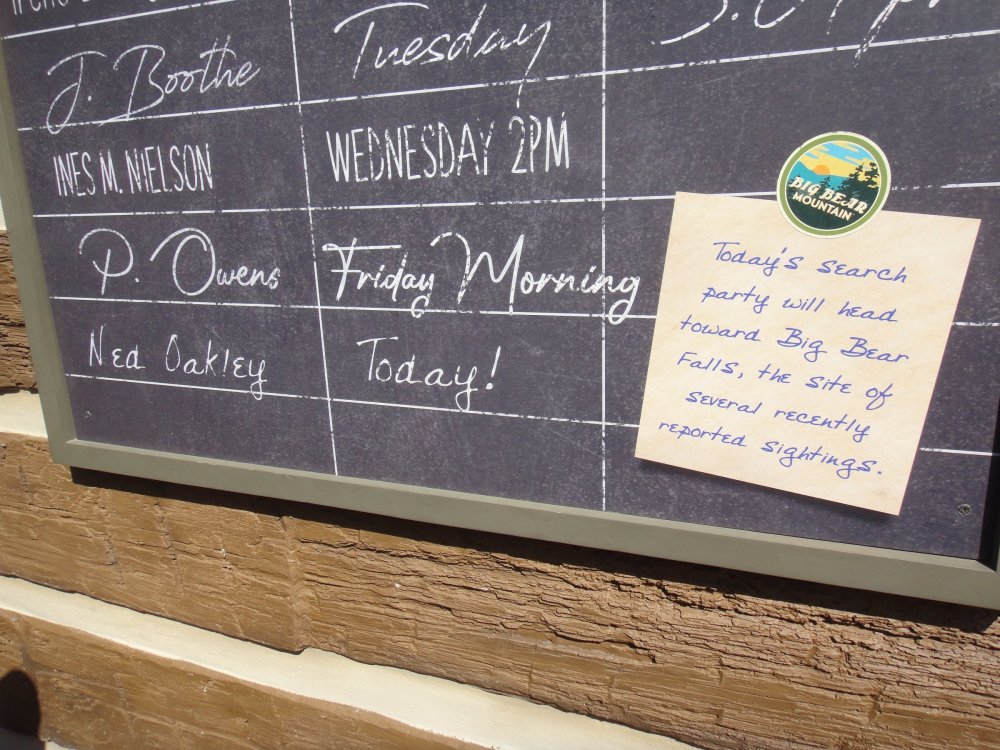 J. Boothe Tuesday
INES M. NIELSON WEDNESDAY 2PM
P. Owens Friday Morning
Ned Oakley Today!
BIG BEAR
MOUNTAIN
Today's search
party will head
toward Big Bear
Falls, the site of
several recently
reported sightings.